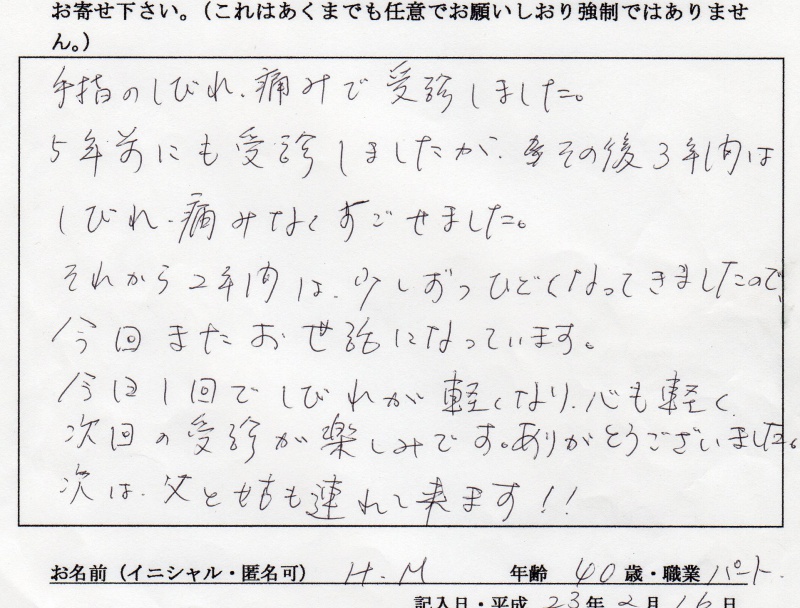 お寄せ下さい。（これはあくまでも任意でお願いしおり強制ではありませ
ん。）
手指のしびれ、痛みで受診しました。
5年前にも受診しましたが、その後3年間は
しびれ、痛みなくすごせました。
それから2年間は、少しずつひどくなってきましたので、
今回またお世話になっています。
今日1回でしびれが軽くなり、心も軽く
次回の受診が楽しみです。ありがとうございました。
次は、父と姑も連れて来ます!!
お名前（イニシャル・匿名可） H.M 年齢 40 歳・職業 パート
記入日・平成 23年 2月 16日